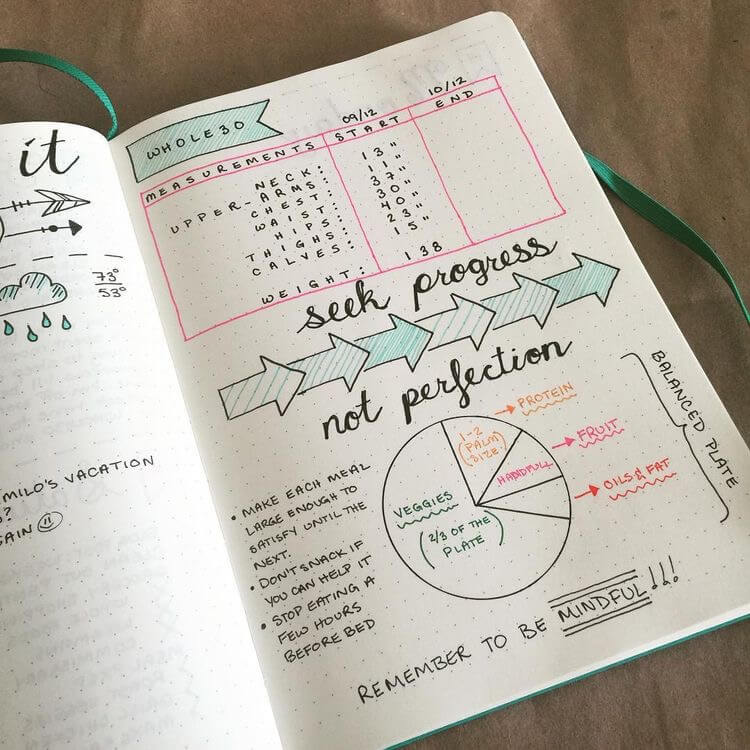 it
73°
53°
MILO'S VACATION
?
AIN
WHOLE30
09/12 10/12
MEASUREMENTS START END
NECK: 13"
UPPER-ARMS: 11"
CHEST: 37"
WAIST: 30"
HIPS: 40"
THIGHS: 23"
CALVES: 15"
WEIGHT: 138
seek progress
not perfection
• MAKE EACH MEAL
LARGE ENOUGH TO
SATISFY UNTIL THE
NEXT.
• DON'T SNACK IF
YOU CAN HELP IT
• STOP EATING A
FEW HOURS
BEFORE BED
VEGGIES
(2/3 OF THE
PLATE)
1-2
(PALM
SIZE)
PROTEIN
HANDFULL
FRUIT
OILS & FAT
BALANCED PLATE
REMEMBER TO BE MINDFUL!!!